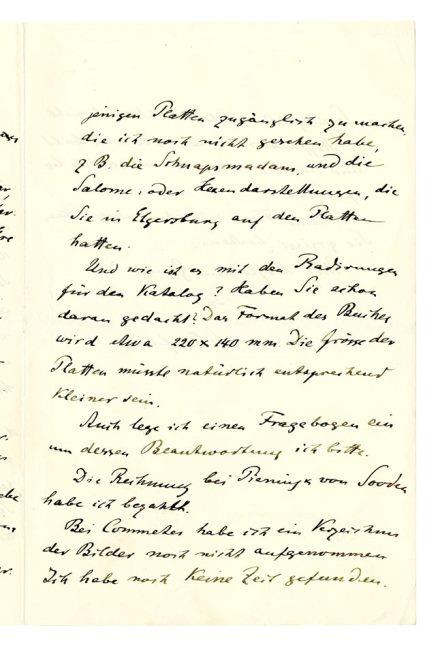 jenigen Platten zugänglich zu machen,
die ich noch nicht gesehen habe,
z B. die Schnapsmadam, und die
Salome, oder Hexendarstellungen, die
Sie in Elgersburg auf den Platten
hatten.
Und wie ist es mit den Radirungen
für den Katalog? Haben Sie schon
daran gedacht? Das Format des Buches
wird etwa 220 x 140 mm Die Grösse der
Platten müsste natürlich entsprechend
kleiner sein.
Auch lege ich einen Fragebogen ein
um dessen Beantwortung ich bitte.
Die Rechnung bei von
habe ich bezahlt.
Bei Commeter habe ich ein Verzeichnis
der Bilder noch nicht aufgenommen
Ich habe noch keine Zeit gefunden.